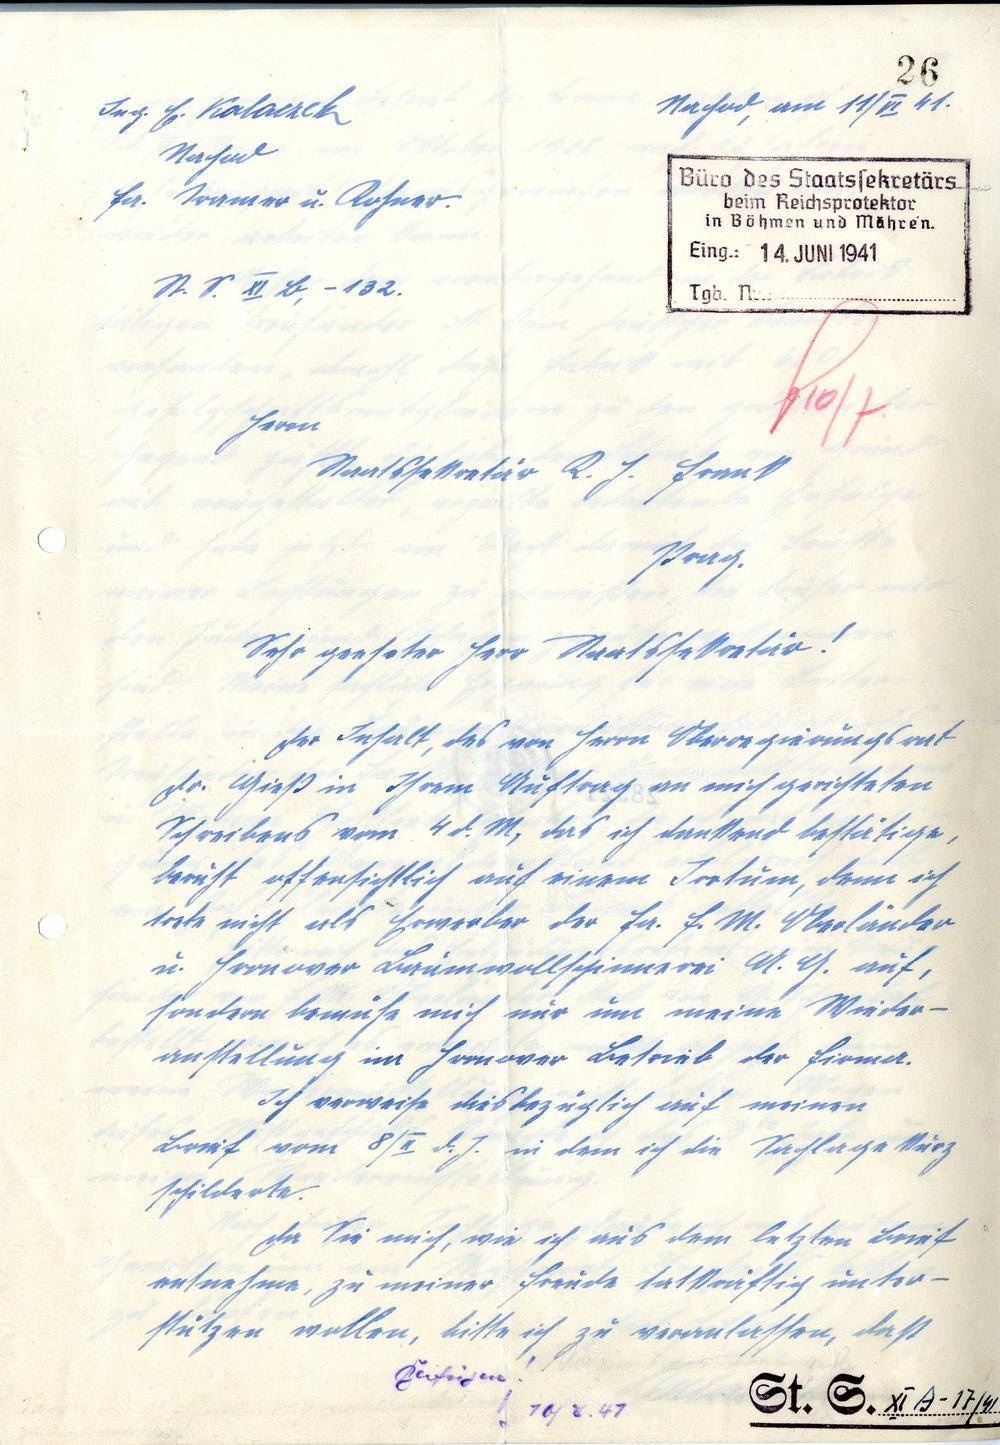 26
Ing. E. Kolaczek
Nachod, am 11/VI 41.
Nachod
Fa. Kramer u. Rohner.
Büro des Staatssekretärs
beim Reichsprotektor
in Böhmen und Mähren.
Eing.: 14. JUNI 1941
Tgb. Nr.:
St. S. XI B, -132.
10/7.
Herrn
Staatssekretär K. H. Frank
Prag.
Sehr geehrter Herr Staatssekretär!
Der Inhalt, des von Herrn Oberregierungsrat
Dr. Gieß in Ihrem Auftrag an mich gerichteten
Schreibens vom 4 d. M, das ich dankend bestätige,
beruht offensichtlich auf einem Irrtum, denn ich
trete nicht als Erwerber der Fa. F. M. Oberländer
u. Hronover Baumwollspinnerei A. G. auf,
sondern bemühe mich nur um meine Wieder-
anstellung im Hronover Betrieb der Firma.
Ich verweise diesbezüglich auf meinen
Brief vom 8/II d. J. in dem ich die Sachlage kurz
schilderte.
Da Sie mich, wie ich aus dem letzten Brief
entnehme, zu meiner Freude tatkräftig unter-
stützen wollen, bitte ich zu veranlassen, daß
St. S. XI B - 17/41